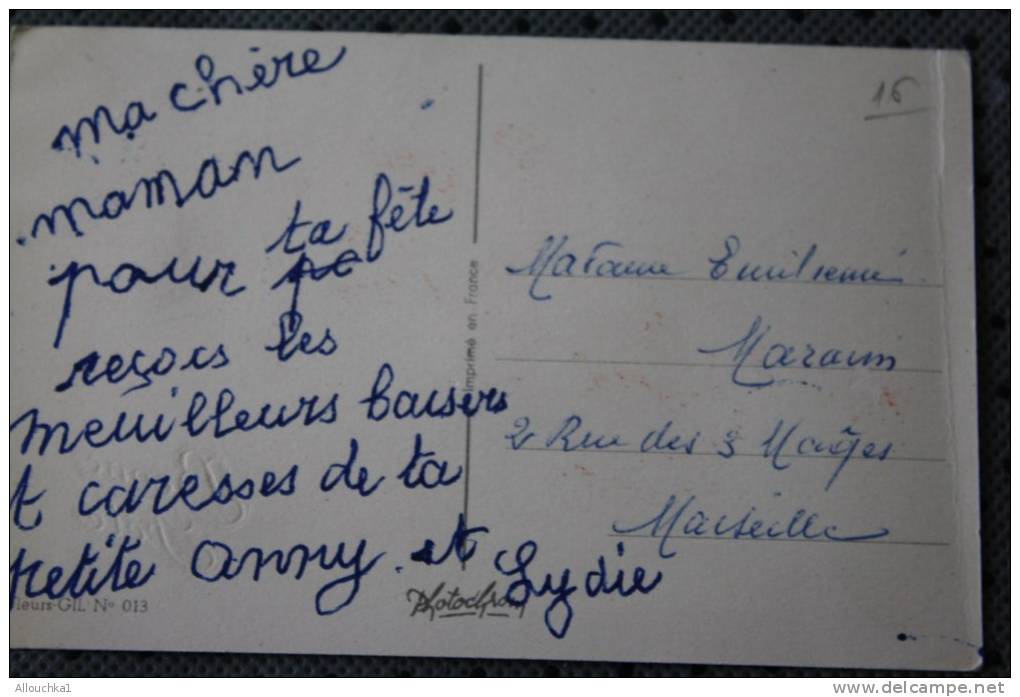 ma chère
maman
pour ta fête
reçois les
meuilleurs baisers
et caresses de ta
petite anny. et Lydie
16
Madame
2 Rue des 3 Mages
Marseille
Imprimé en France
fleurs-GIL' No 013
Photochrom
Allouchka1
www.delcampe.net